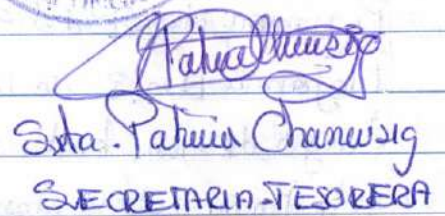 Srta. Patricia Chancusig
SECRETARIA-TESORERA